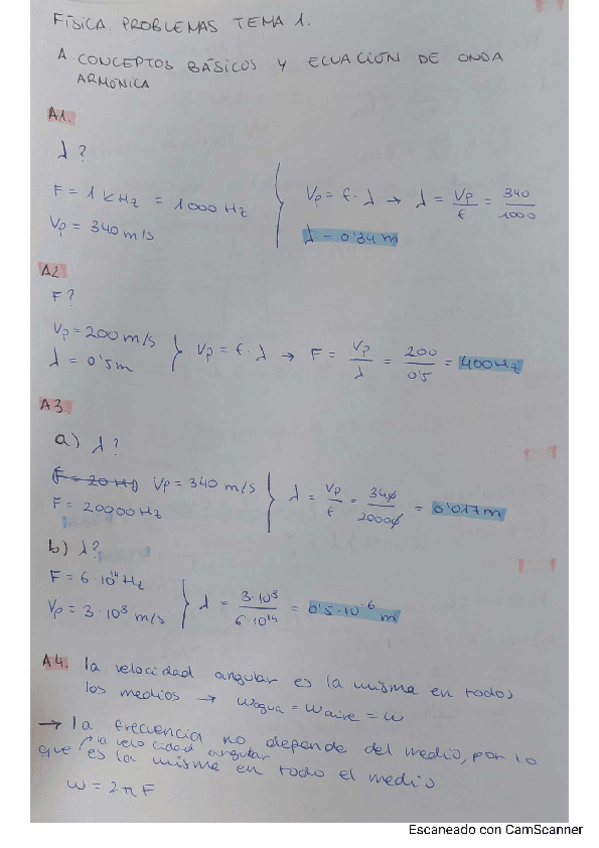 FÍSICA. PROBLEMAS TEMA 1.
A. CONCEPTOS BÁSICOS Y ECUACIÓN DE ONDA
ARMÓNICA
A1.
λ?
F = 1 kHz = 1000 Hz
Vp = 340 m/s
Vp = f · λ → λ = Vp/f = 340/1000
λ = 0'34 m
A2
F?
Vp = 200 m/s
λ = 0'5 m
Vp = f · λ → F = Vp/λ = 200/0'5 = 400 Hz
A3
a) λ?
F = 20 Hz Vp = 340 m/s
F = 20000 Hz
λ = Vp/f = 340/20000 = 0'017 m
b) λ?
F = 6·10¹⁴ Hz
Vp = 3·10⁸ m/s
λ = 3·10⁸/6·10¹⁴ = 0'5·10⁻⁶ m
A4. la velocidad angular es la misma en todos
los medios → ωagua = ωaire = ω
→ la frecuencia no depende del medio, por lo
que la velocidad angular es la misma en todo el medio
ω = 2πF
Escaneado con CamScanner